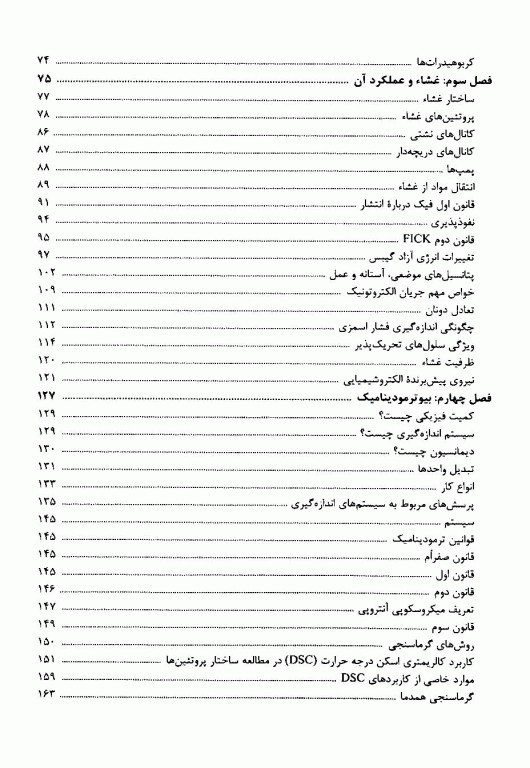 کربوهیدرات‌ها ۷۴
فصل سوم: غشاء و عملکرد آن ۷۵
ساختار غشاء ۷۷
پروتئین‌های غشاء ۷۸
کانال‌های نشتی ۸۶
کانال‌های دریچه‌دار ۸۷
پمپ‌ها ۸۸
انتقال مواد از غشاء ۸۹
قانون اول فیک دربارهٔ انتشار ۹۱
نفوذپذیری ۹۴
قانون دوم FICK ۹۵
تغییرات انرژی آزاد گیبس ۹۷
پتانسیل‌های موضعی، آستانه و عمل ۱۰۲
خواص مهم جریان الکتروتونیک ۱۰۹
تعادل دونان ۱۱۱
چگونگی اندازه‌گیری فشار اسمزی ۱۱۲
ویژگی سلول‌های تحریک‌پذیر ۱۱۴
ظرفیت غشاء ۱۲۰
نیروی پیش‌برندهٔ الکتروشیمیایی ۱۲۱
فصل چهارم: بیوترمودینامیک ۱۲۷
کمیت فیزیکی چیست؟ ۱۲۹
سیستم اندازه‌گیری چیست؟ ۱۲۹
دیمانسیون چیست؟ ۱۳۰
تبدیل واحدها ۱۳۱
انواع کار ۱۳۳
پرسش‌های مربوط به سیستم‌های اندازه‌گیری ۱۳۵
سیستم ۱۴۵
قوانین ترمودینامیک ۱۴۵
قانون صفرأم ۱۴۵
قانون اول ۱۴۵
قانون دوم ۱۴۶
تعریف میکروسکوپی آنتروپی ۱۴۷
قانون سوم ۱۴۹
روش‌های گرماسنجی ۱۵۰
کاربرد کالریمتری اسکن درجه حرارت (DSC) در مطالعه ساختار پروتئین‌ها ۱۵۱
موارد خاصی از کاربردهای DSC ۱۵۹
گرماسنجی همدما ۱۶۳